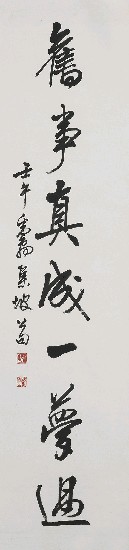 舊事真成一夢過
壬午
集坡公句